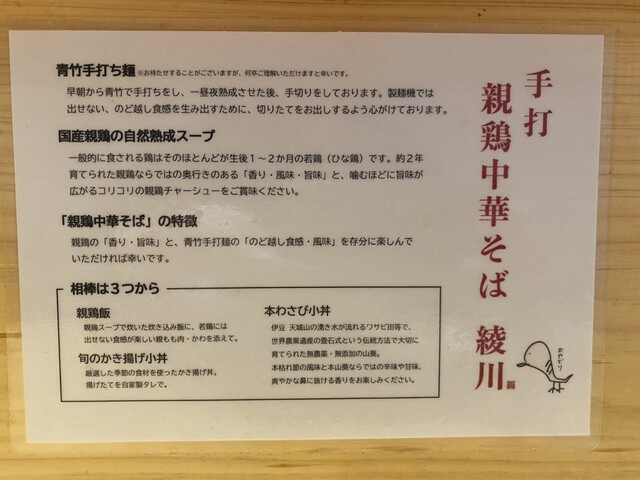 手打
親鶏中華そば 綾川
おやどり
青竹手打ち麺 ※お待たせすることがございますが、何卒ご理解いただけますと幸いです。
早朝から青竹で手打ちをし、一昼夜熟成させた後、手切りをしております。製麺機では
出せない、のど越し食感を生み出すために、切りたてをお出しするよう心がけております。
国産親鶏の自然熟成スープ
一般的に食される鶏はそのほとんどが生後1～2か月の若鶏(ひな鶏)です。約2年
育てられた親鶏ならではの奥行きのある「香り・風味・旨味」と、噛むほどに旨味が
広がるコリコリの親鶏チャーシューをご賞味ください。
「親鶏中華そば」の特徴
親鶏の「香り・旨味」と、青竹手打麺の「のど越し食感・風味」を存分に楽しんで
いただければ幸いです。
相棒は3つから
親鶏飯
親鶏スープで炊いた炊き込み飯に、若鶏には
出せない食感が楽しい親もも肉・かわを添えて。
旬のかき揚げ小丼
厳選した季節の食材を使ったかき揚げ丼。
揚げたてを自家製タレで。
本わさび小丼
伊豆 天城山の湧き水が流れるワサビ田等で、
世界農業遺産の畳石式という伝統方法で大切に
育てられた無農薬・無添加の山葵。
本枯れ節の風味と本山葵ならではの辛味や甘味、
爽やかな鼻に抜ける香りをお楽しみください。